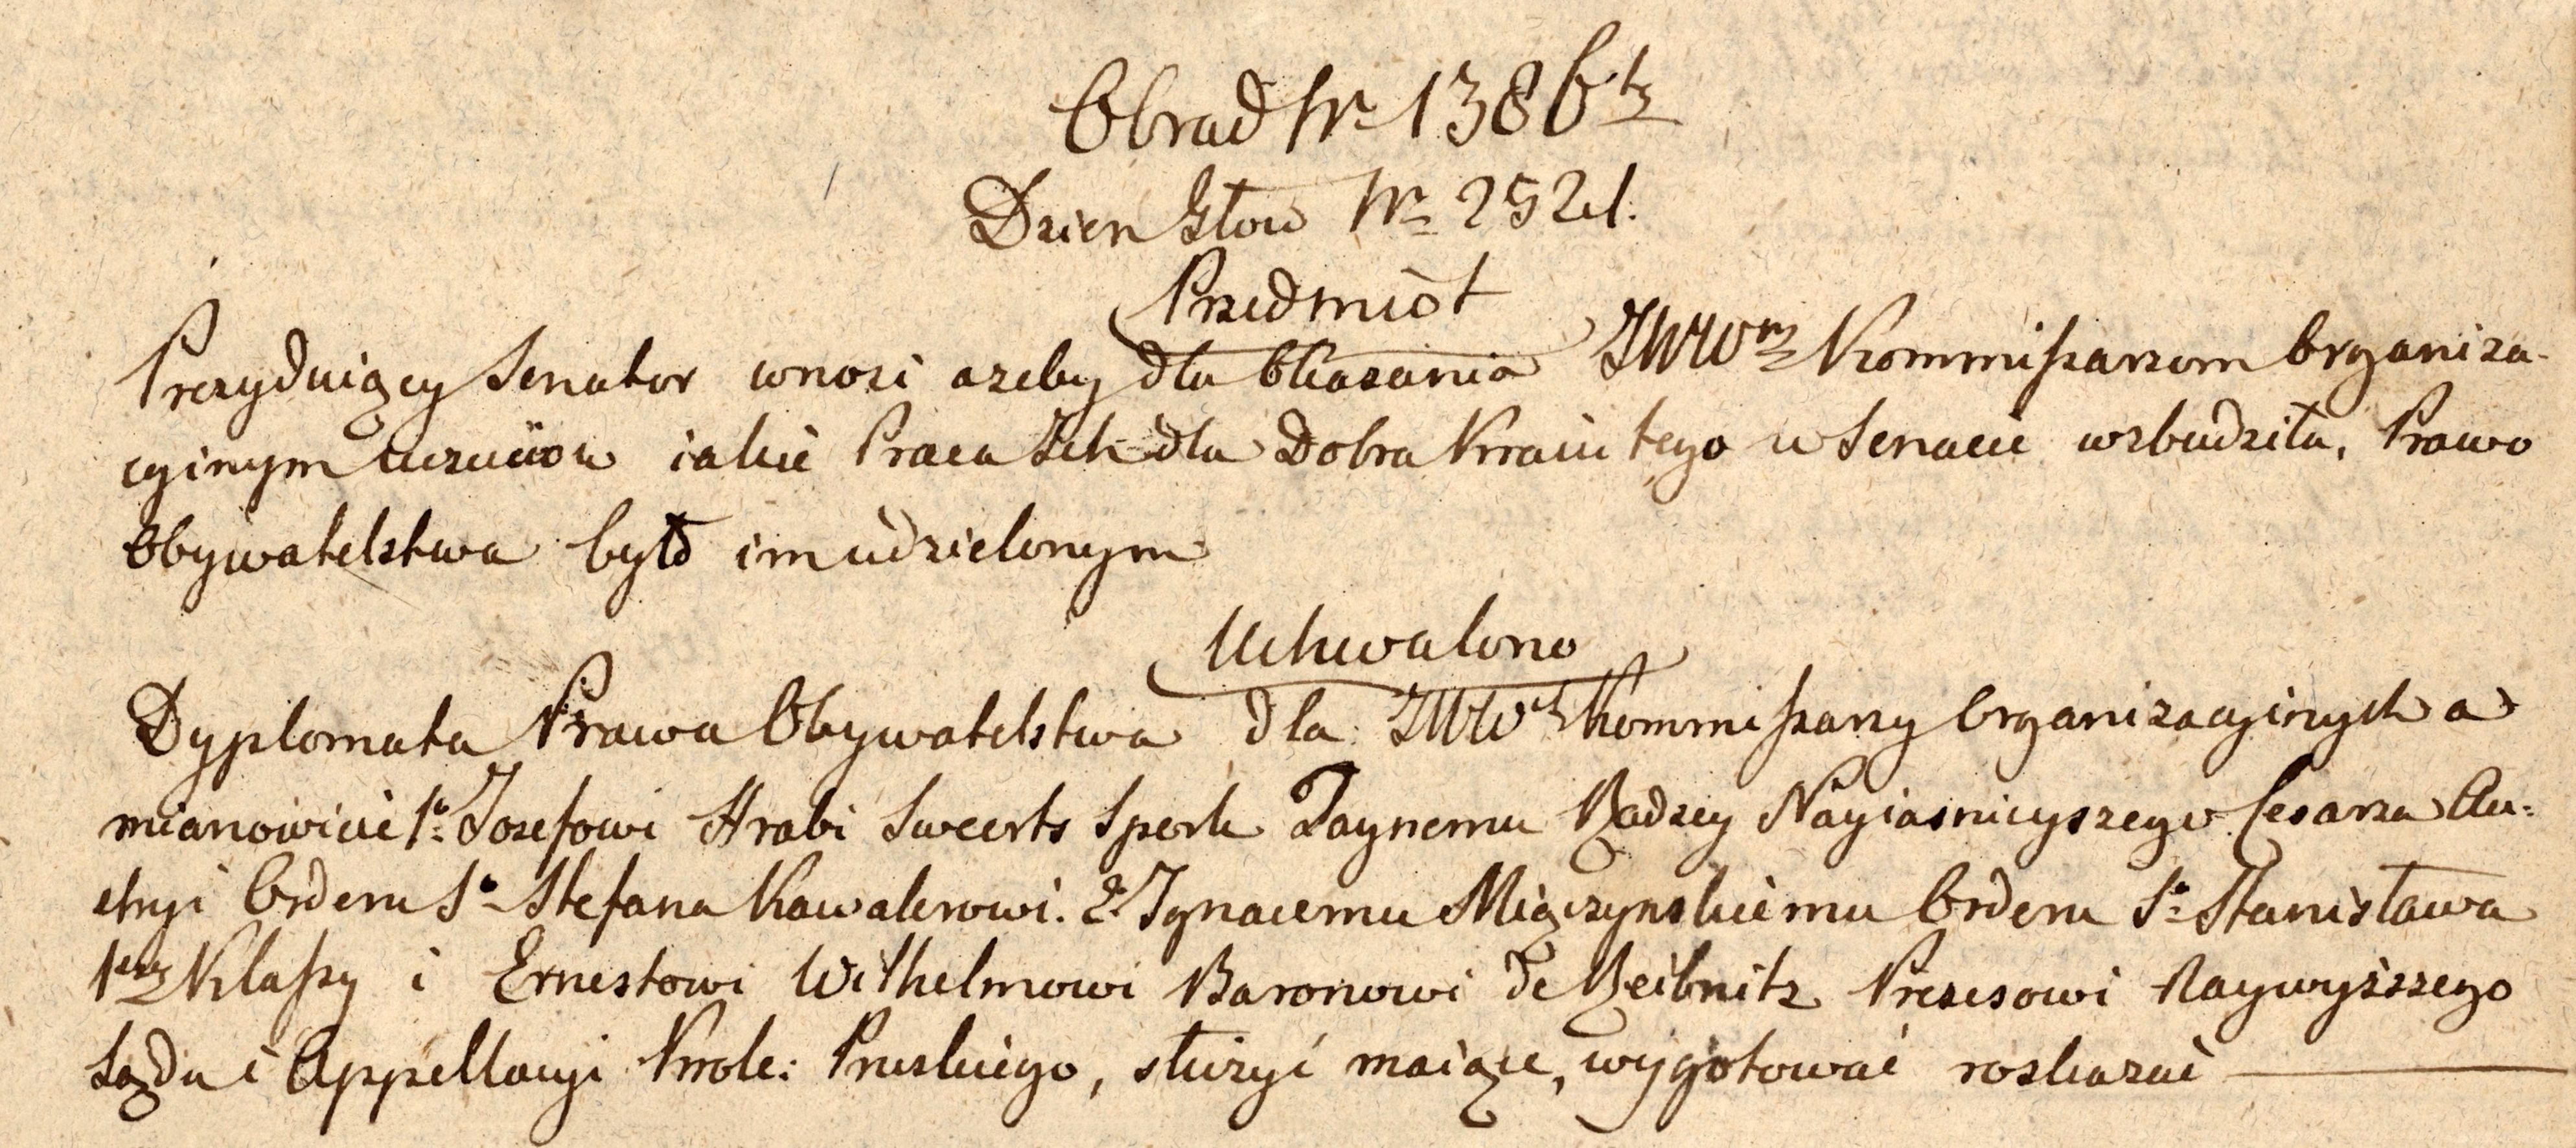 Obrad Nr 1386ty
Dzien Głow Nr 2521.
Przedmiot
Prezyduiący Senator wnosi azeby dla Okazania JWWm Kommissarzom Organiza-
cyinym uczuciow iakie Praca Ich dla Dobra Kraiu tego w Senacie wzbudziła, Prawo
Obywatelstwa było im udzielonym
Uchwalono
Dyplomata Prawa Obywatelstwa dla JWWch Kommissarzy Organizacyinych a
mianowicie 1o Jozefowi Hrabi Sweerts Spork Taynemu Radzcy Nayiasnieyszego Cesarza Au=
stryi Orderu So Stefana Kawalerowi. 2o Ignacemu Miączynskiemu Orderu So Stanisława
1szey Klassy i Ernestowi Wilhelmowi Baronowi de Reibnitz Prezesowi Naywyższego
Sądu i Appellacyi Krole: Pruskiego, służyć maiące, wygotować rozkazać